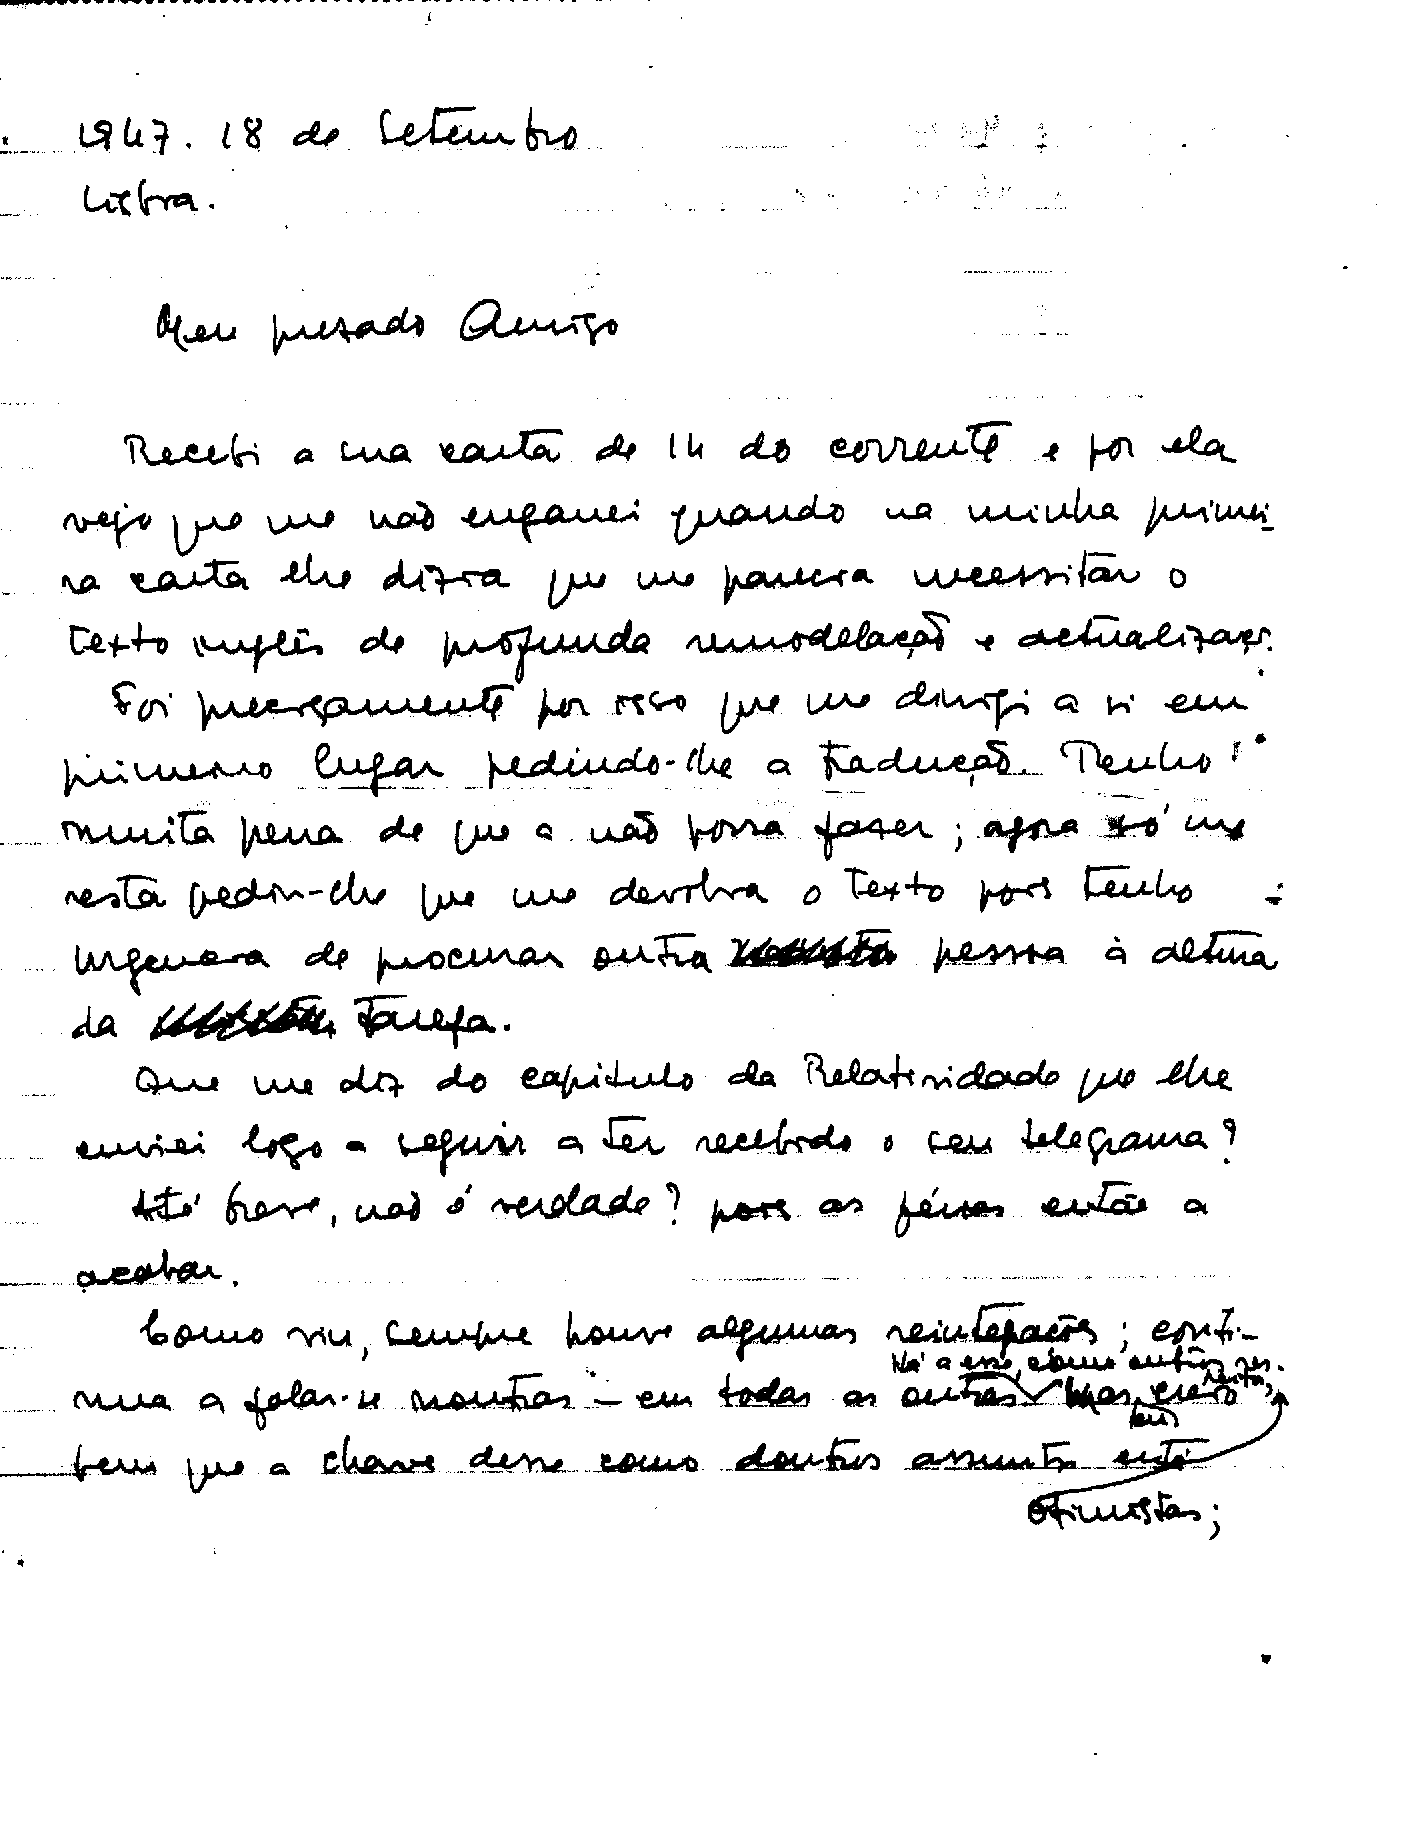 1947. 18 de Setembro
Lisboa.
Meu presado Amigo
Recebi a sua carta de 14 do corrente e por ela
vejo que me não enganei quando na minha primei-
ra carta lhe dizia que me parecia necessitar o
texto inglês de profunda remodelação e actualizaç.
Foi precisamente por isso que me dirigi a si em
primeiro lugar pedindo-lhe a tradução. Tenho
muita pena de que a não possa fazer; agora só me
resta pedir-lhe que me devolva o texto pois tenho
urgencia de procurar outra pessoa à altura
da tarefa.
Que me diz do capitulo da Relatividade que lhe
enviei logo a seguir a ter recebido o seu telegrama?
Até breve, não é verdade? pois as férias estão a
acabar.
Como viu, sempre houve algumas reintegações; conti-
Há a esse, como outros res-
peitos,
nua a falar-se noutras - em todas as outras
bem que a chave desse como doutros assuntos está
otimistas;